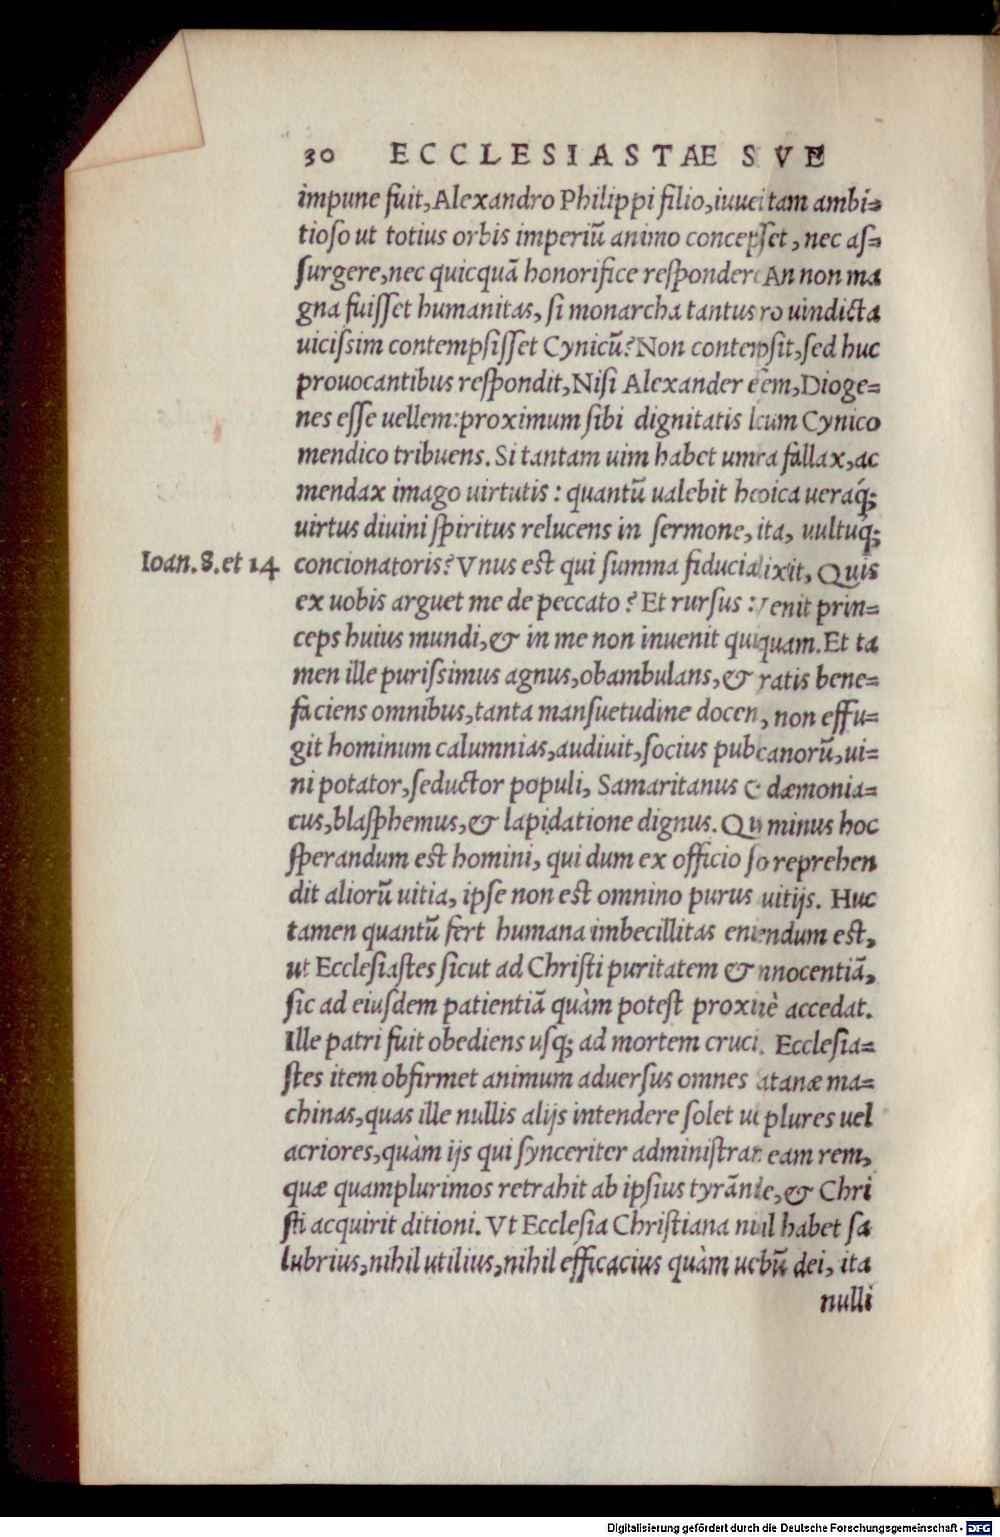 30 ECCLESIASTAE SVE
impune fuit, Alexandro Philippi filio, tam ambi=
tioso ut totius orbis imperiũ animo nec as=
surgere, nec quicquã honorifice An non ma
gna fuisset humanitas, si monarcha tantus uindicta
uicissim contempsisset Cynicũ? Non sed huc
prouocantibus respondit, Nisi Alexander Dioge=
nes esse uellem: proximum sibi dignitatis Cynico
mendico tribuens. Si tantam uim habet fallax, ac
mendax imago uirtutis: quantũ ualebit ueraq́;
uirtus diuini spiritus relucens in sermone, uultuq́;
Ioan. 8. et 14 concionatoris? Vnus est qui summa fiducia Quis
ex uobis arguet me de peccato? Et rursus: Venit prin=
ceps huius mundi, & in me non inuenit Et ta
men ille purissimus agnus, obambulans, & bene=
faciens omnibus, tanta mansuetudine non effu=
git hominum calumnias, audiuit, socius ui=
ni potator, seductor populi, Samaritanus dæmonia=
cus, blasphemus, & lapidatione dignus. minus hoc
sperandum est homini, qui dum ex officio reprehen
dit aliorũ uitia, ipse non est omnino purus uitijs. Huc
tamen quantũ fert humana imbecillitas est,
ut Ecclesiastes sicut ad Christi puritatem &
sic ad eiusdem patientiã quàm potest accedat.
Ille patri fuit obediens usq; ad mortem Ecclesia=
stes item obfirmet animum aduersus omnes ma=
chinas, quas ille nullis alijs intendere solet plures uel
acriores, quàm ijs qui synceriter eam rem,
quæ quamplurimos retrahit ab ipsius & Chri
sti acquirit ditioni. Vt Ecclesia Christiana habet sa
lubrius, nihil utilius, nihil efficacius quàm dei, ita
nulli
Digitalisierung gefördert durch die Deutsche Forschungsgemeinschaft - DFG